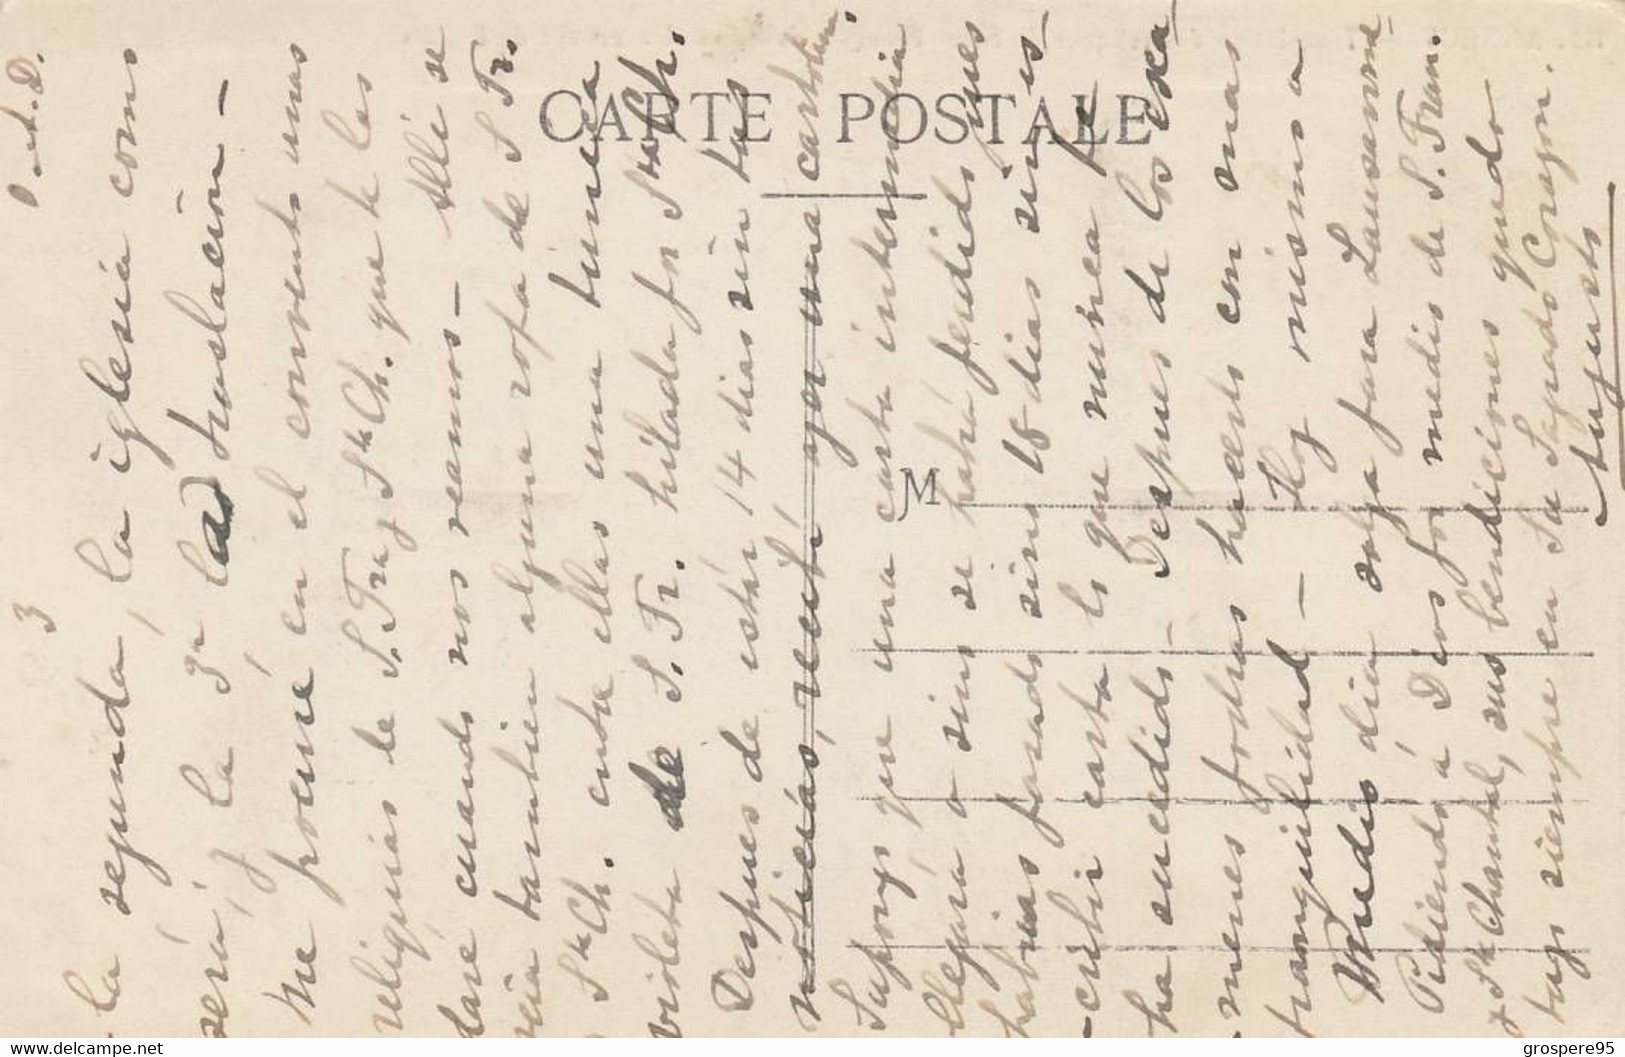 3 A.D.
la segunda, la iglesia como
será, y la 3ª la traslación —
Me procuré en el convento unas
reliquias de S. Fr. y Sta Ch. que te las
daré cuando nos veamos — Allí se
veía tambien alguna ropa de S Fr.
Sta Ch. entre ellas una tunica
violeta de S. Fr. hilada por Sta Ch.
Despues de estar 14 dias sin tus
noticias, recibí ayer una cartita.
Supongo que una carta intermedia
llegará o sino se habrá perdido pues
habrias pasado sino 18 dias sin es-
-cribir carta lo que nunca te
ha sucedido — Despues de los exa-
-menes podras hacerlo con mas
tranquilidad — Hoy mismo a
Medio dia salgo para Lausanne
Pidiendo á Dios por medio de S. Fran.
y Sta Chantal, sus bendiciones quedo
tuyo siempre en Su Sagrado Corazon.
Augusto
CARTE POSTALE
M
grospere95